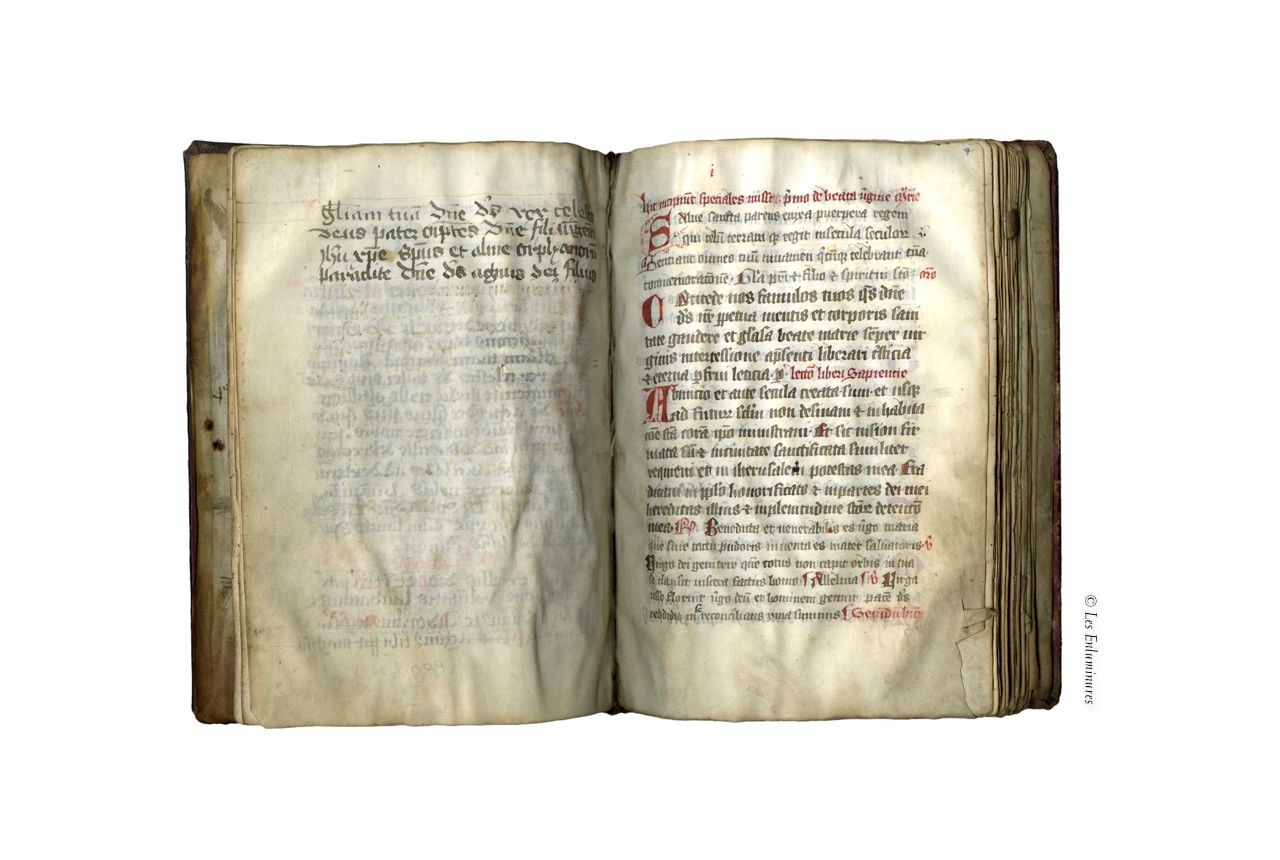 gliam tuā dñe ds rex celestis
deus pater oīptēs dñe fili unigeni
Jhu xpe Spūs et alme orphanorū
paraclite dñe ds agnus dei filius
i
hic incipiūt speciales misse p̄mo de beata v̄gine
Salue sancta parens enixa puerpera regem
qui celū terramq̄ regit in secula seculoꝝ
Sentiant omnes tuū iuuamen q̄cūq̄ celebrant tuā
cōmemoracionem Gl̄a pr̄i et filio et spiritui sc̄o
COncede nos famulos tuos q̄s dñe
ds nr̄ ꝑpetua mentis et corporis sani
tate gaudere et gl̄osa beate marie semꝑ uir
ginis intercessione a p̄senti liberari tristicia
et eterna ꝑfrui leticia p lectō libri Sapientie
Ab inicio et ante secula creata sum et usq̄
ad futur sclm̄ non desinam et in habita
cōe sc̄a corā ip̄o ministraui Et sic in sion fir
mata sū et in ciuitate sanctificata similiter
requieui et in iherusalem potestas mea Et ra
dicaui in pp̄lo honorificato et in partes dei mei
hereditas illius et in plenitudine sc̄oꝝ detencō
mea Benedicta et venerabilis es v̄go maria
que sine tactu pudoris inuenta es mater saluatoris
Virgo dei genitrix quē totus non capit orbis in tua
se clausit viscera factus homo Alleluia Virga
iesse floruit v̄go deū et hominem genuit pacē ds
reddidit in se reconcilians yma summis
© Les Enluminures